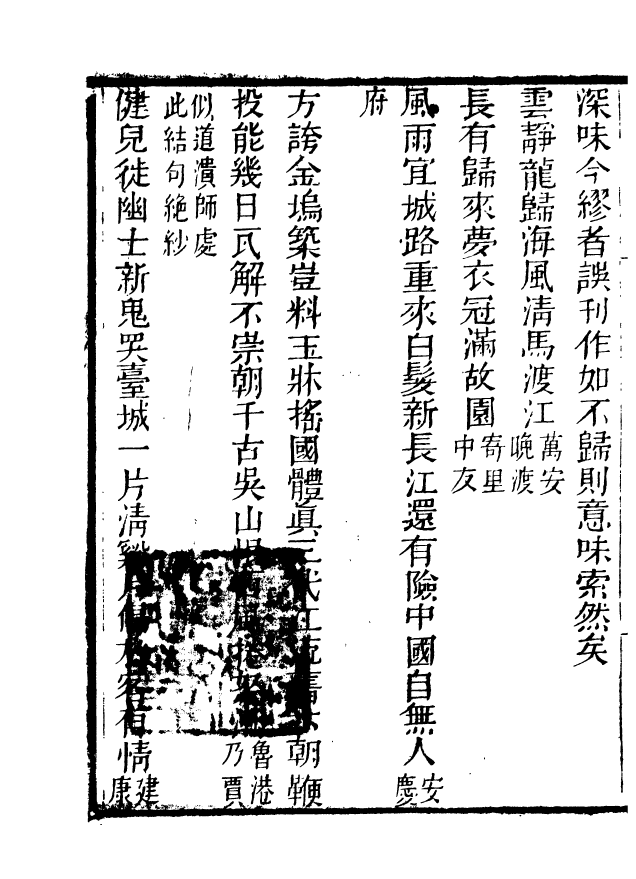 深味今繆者誤刊作如不歸則意味索然矣
雲靜龍歸海風淸馬渡江萬安晚渡
長有歸來夢衣冠滿故園寄里中友
風雨宜城路重來白髮新長江還有險中國自無人安慶
府
方誇金塢築豈料玉牀搖國體眞三代江流舊六朝鞭
投能幾日瓦解不崇朝千古吳山恨風捲怒魯港乃賈
似道潰師處此結句絶紗
健兒徒幽士新鬼哭臺城一片淸谿月偏於客有情建康